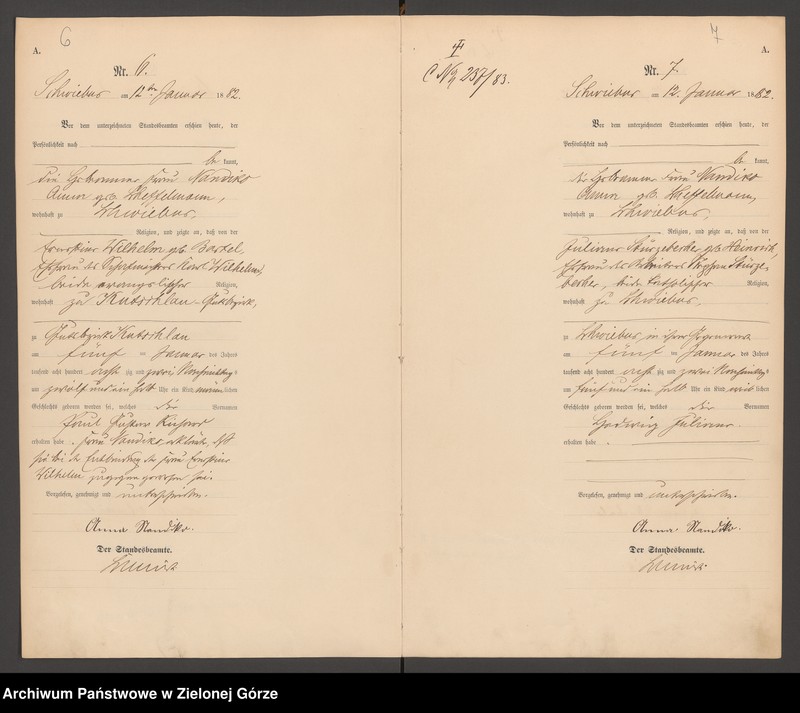 6
A.
Nr. 6.
Schwiebus am 12ten Januar 1882.
Vor dem unterzeichneten Standesbeamten erschien heute, der
Persönlichkeit nach
be kannt,
die Hebamme Frau Nandiko
Anna geb. Scheffelmann,
wohnhaft zu Schwiebus,
Religion, und zeigte an, daß von der
Ernestine Wilhelm geb. Bartel,
Ehefrau des Karl Wilhelm,
beide evangelischer Religion,
wohnhaft zu Kutschlau-Gutsbezirk,
zu Gutsbezirk Kutschlau
am fünf ten Januar des Jahres
tausend acht hundert acht zig und zwei Nachmittags
um zwölf und ein halb Uhr ein Kind männlichen
Geschlechts geboren worden sei, welches die Vornamen
Paul Gustav
erhalten habe. Frau Nandiko erklärte, daß
sie bei der Entbindung der Frau Ernestine
Wilhelm zugegen gewesen sei.
Vorgelesen, genehmigt und unterschrieben.
Anna Nandiko.
Der Standesbeamte.
7
C No 237/83.
A.
Nr. 7.
Schwiebus am 12. Januar 1882.
Vor dem unterzeichneten Standesbeamten erschien heute, der
Persönlichkeit nach
be kannt,
die Hebamme Frau Nandiko
Anna geb. Scheffelmann,
wohnhaft zu Schwiebus,
Religion, und zeigte an, daß von der
Juliane Stürzebecher geb. Heinrich,
Ehefrau des Arbeiters Stürze-
becher, beide katholischer Religion,
wohnhaft zu Schwiebus,
zu Schwiebus, in ihrer Gegenwart
am fünf ten Januar des Jahres
tausend acht hundert acht zig und zwei Nachmittags
um fünf und ein halb Uhr ein Kind weiblichen
Geschlechts geboren worden sei, welches die Vornamen
Hedwig Juliane
erhalten habe.
Vorgelesen, genehmigt und unterschrieben.
Anna Nandiko.
Der Standesbeamte.
Archiwum Państwowe w Zielonej Górze